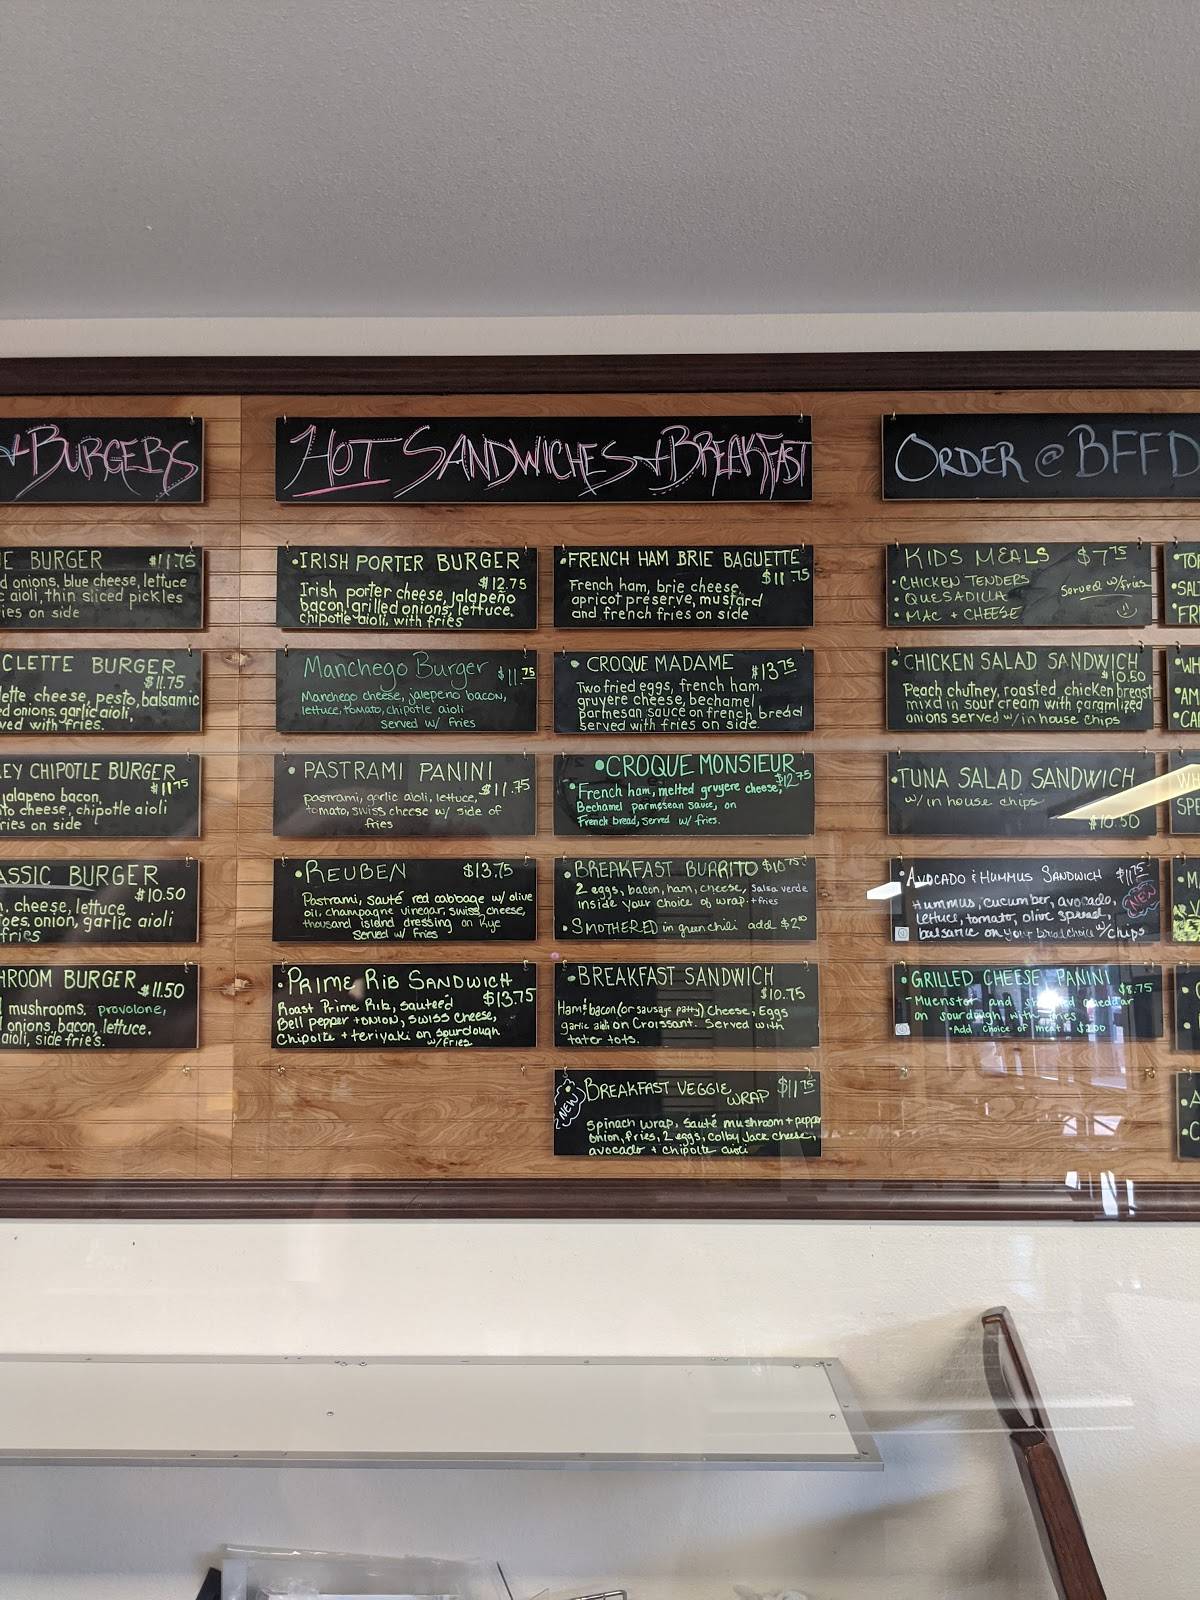 + BURGERS
BURGER $11.75
onions, blue cheese, lettuce
aioli, thin sliced pickles
on side
CLETTE BURGER
$11.75
cheese, pesto, balsamic
onions, garlic aioli,
with fries.
EY CHIPOTLE BURGER
$11.75
jalapeno bacon,
cheese, chipotle aioli
fries on side
ASSIC BURGER
$10.50
cheese, lettuce
onion, garlic aioli
fries
HROOM BURGER
$11.50
mushrooms, provolone,
onions, bacon, lettuce,
aioli, side fries.
HOT SANDWICHES + BREAKFAST
• IRISH PORTER BURGER
$12.75
Irish porter cheese, jalapeño
bacon, grilled onions, lettuce,
chipotle aioli, with fries
Manchego Burger $11.75
Manchego cheese, jalepeno bacon,
lettuce, tomato, chipotle aioli
served w/ fries
• PASTRAMI PANINI
$11.75
pastrami, garlic aioli, lettuce,
tomato, swiss cheese w/ side of
fries
• REUBEN $13.75
Pastrami, sauté red cabbage w/ olive
oil, champagne vinegar, swiss cheese,
thousand island dressing on Rye
Served w/ Fries
• PRIME RIB SANDWICH
$13.75
Roast Prime Rib, sauteed
Bell pepper + onion, swiss cheese,
Chipotle + teriyaki on sourdough
w/fries
• FRENCH HAM BRIE BAGUETTE
$11.75
French ham, brie cheese,
apricot preserve, mustard
and french fries on side
• CROQUE MADAME
$13.75
Two fried eggs, french ham,
gruyere cheese, bechamel
parmesan sauce on french bread
served with fries on side.
• CROQUE MONSIEUR
$12.75
• French ham, melted gruyere cheese,
Bechamel parmesean sauce, on
French bread, served w/ fries.
• BREAKFAST BURRITO $10.75
2 eggs, bacon, ham, cheese, salsa verde
inside your choice of wrap + fries
• SMOTHERED in green chili add $2.00
• BREAKFAST SANDWICH
$10.75
Ham & bacon (or sausage patty) Cheese, Eggs
garlic aioli on Croissant. Served with
tater tots.
NEW
• BREAKFAST VEGGIE WRAP $11.75
Spinach wrap, sauté mushroom + pepper
onion, fries, 2 eggs, colby Jack cheese,
avocado + chipotle aioli
ORDER @ BFFD
KIDS MEALS $7.75
• CHICKEN TENDERS
• QUESADILLA
• MAC + CHEESE
Served w/fries
• CHICKEN SALAD SANDWICH
$10.50
Peach chutney, roasted chicken breast
mixd in sour cream with caramlized
onions served w/ in house chips
• TUNA SALAD SANDWICH
w/ in house chips
$10.50
• AVOCADO & HUMMUS SANDWICH $11.75
NEW
Hummus, cucumber, avocado,
lettuce, tomato, olive spread,
balsamic on your bread choice w/ chips
• GRILLED CHEESE PANINI
$8.75
- Muenster and cheddar
on sourdough with fries
• Add choice of meat $2.00